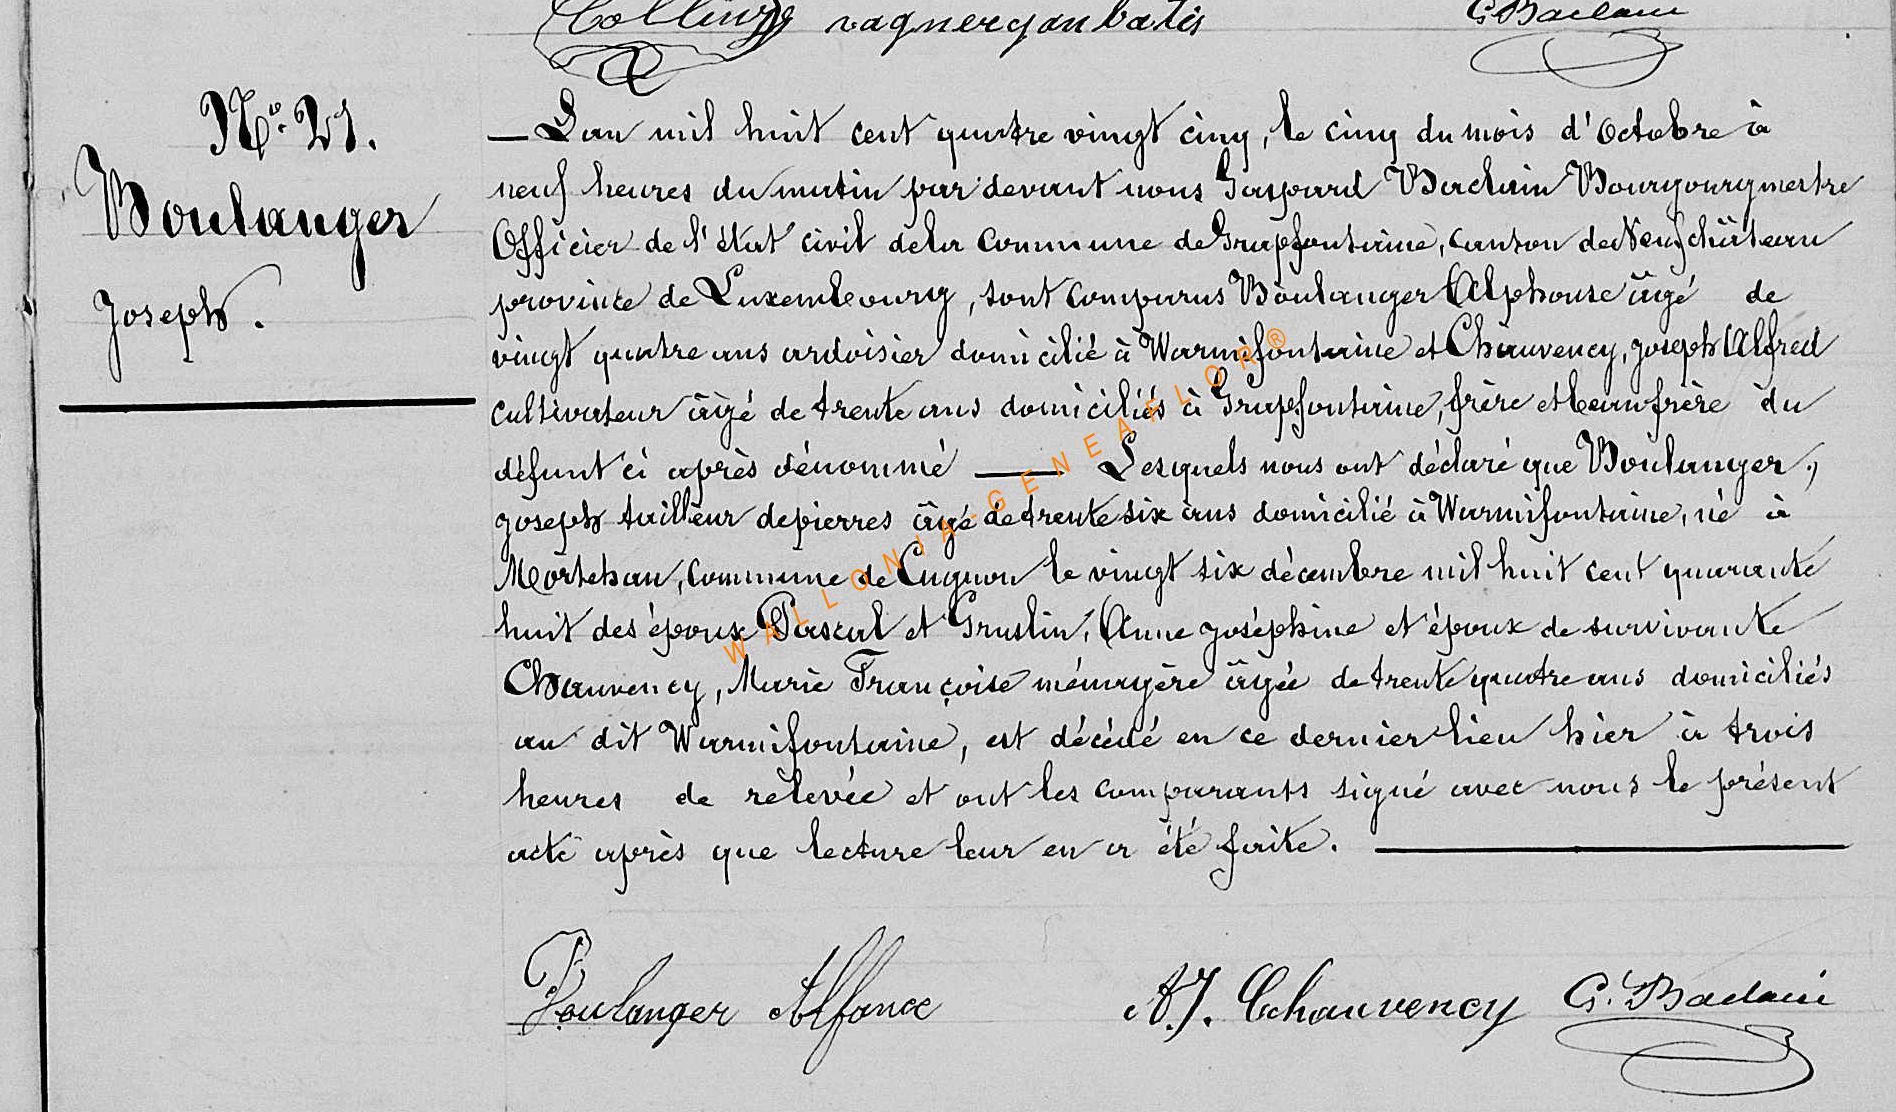 Collin vagnerjanbatis G. Baclain
N° 21.
Boulanger
Joseph.
— L'an mil huit cent quatre vingt cinq, le cinq du mois d'Octobre à
neuf heures du matin par devant nous Gaspard Baclain Bourgourgmestre
Officier de l'état civil de la Commune de Grapfontaine, canton de Neufchâteau
province de Luxembourg, sont comparus Boulanger Alphonse âgé de
vingt quatre ans ardoisier domicilié à Warmifontaine et Chauvency, joseph Alfred
cultivateur âgé de trente ans domiciliés à Grapfontaine, frère et beaufrère du
défunt ci après dénommé — Lesquels nous ont déclaré que Boulanger,
joseph tailleur de pierres âgé de trente six ans domicilié à Warmifontaine, né à
Mortehan, commune de Cugnon le vingt six décembre mil huit cent quarante
huit des époux Pascal et Gruslin, Anne joséphine et époux de survivante
Chauvency, Marie Françoise ménagère âgée de trente quatre ans domiciliés
au dit Warmifontaine, est décédé en ce dernier lieu hier à trois
heures de relevée et ont les comparants signé avec nous le présent
acte après que lecture leur en a été faite. —
Boulanger Alfonce A.J. Chauvency G. Baclain
WALLONIA-GENEAFLOR®